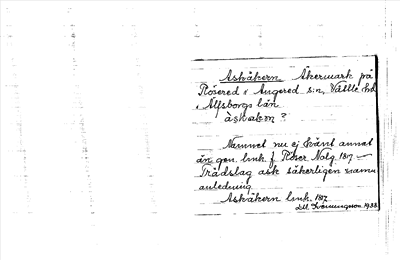 Askåkern Åkermark på
Rösered i Angered s:n, Vättle hd
i Älfsborgs län.
åskakon ?
Namnet nu ej känt annat
än gen. link. f. Röser. No 1817 —
Trädslag ask säkerligen namn
anledning
Askåkern link. 1817
1933